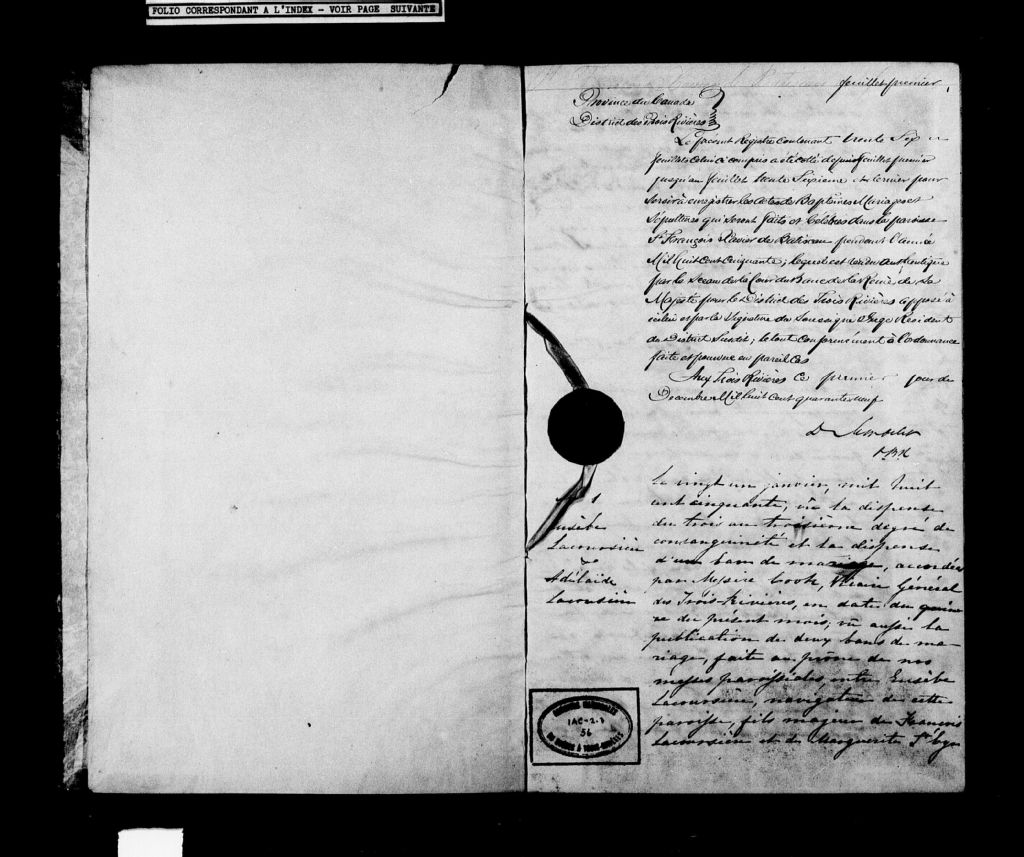 FOLIO CORRESPONDANT A L'INDEX - VOIR PAGE SUIVANTE
feuillet premier
Province du Canada
District des Trois Rivières
Le présent Registre contenant trente Six
feuillets celui ci compris a été côtté depuis feuillet premier
jusqu'au feuillet trente Sixieme et dernier pour
servir à enregistrer les actes de Baptêmes Mariages et
Sépultures qui seront faits et célébrés dans la paroisse
St François Xavier de Batiscan pendant l'année
Mil Huit Cent Cinquante; lequel est rendu authentique
par le Sceau de la Cour du Banc de la Reine de Sa
Majesté pour le District des Trois Rivières apposé à
icelui et par la Signature du Soussigné Juge Résident
du District Susdit; le tout conformément à l'ordonnance
faite et pourvue en pareil Cas
Aux Trois Rivières ce premier jour de
Decembre Mil huit Cent quarante neuf
1
Eusèbe
Lacoursière
&
Adélaïde
Lacoursière
Le vingt un janvier, mil huit
cent cinquante, vu la dispense
du trois au troisième degré de
consanguinité et la dispense
d'un ban de mariage, accordée
par Messire Cook, Vicaire Général
des Trois-Rivières, en date du quin
ze du présent mois; vu aussi la
publication de deux bans de ma
riage, faite au prône de nos
messes paroissiales entre Eusèbe
Lacoursière, navigateur de cette
paroisse, fils majeur de François
Lacoursière et de Marguerite St Cyr
ARCHIVES NATIONALES
IAC-2-1
56
DU QUÉBEC À TROIS-RIVIÈRES